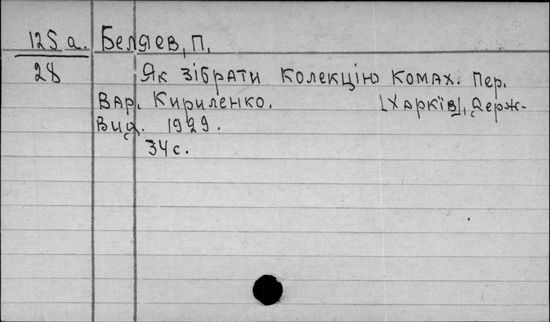 125 а. Беляев, П.
28 Як зібрати колекцію комах. Пер.
Вар. Кириленко. [Харків], Держ-
вид. 1929.
34 с.